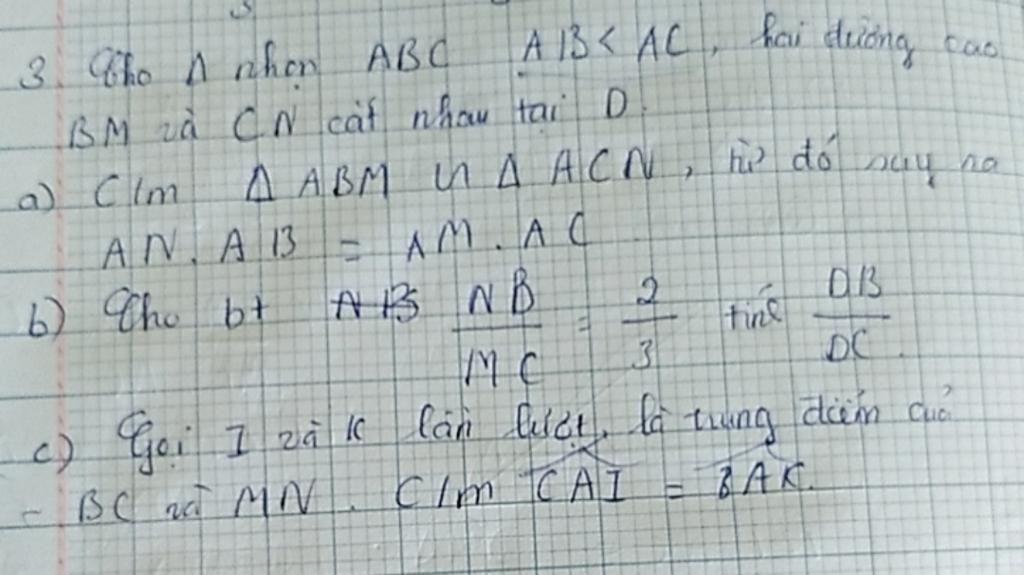 3. Cho Δ nhọn ABC AB < AC, hai đường cao
BM và CN cắt nhau tại D.
a) C/m Δ ABM ∽ Δ ACN, từ đó suy ra
AN. AB = AM. AC
b) Cho bt AB NB/MC = 2/3 tính DB/DC.
c) Gọi I và K lần lượt là trung điểm của
- BC và MN. C/m CAI = BAK.